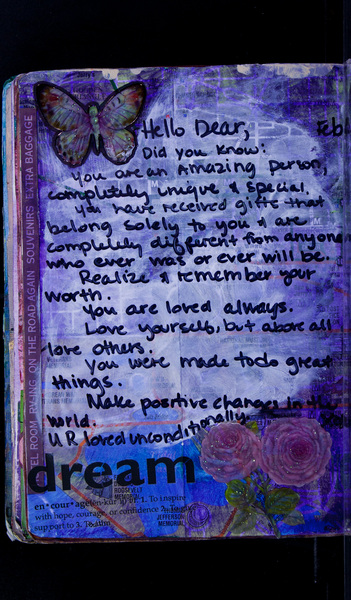 Hello Dear,
Feb
Did you know:
You are an Amazing person,
completely unique & special.
You have received gifts that
belong solely to you & are
completely different from anyone
who ever was or ever will be.
Realize & remember your
worth.
You are loved always.
Love yourself, but above all
love others.
You were made todo great
things.
Make positive changes in the
world.
U R loved unconditionally
EL ROOM RV-ING ON THE ROAD AGAIN SOUVENIRS EXTRA BAGGAGE
dream
en*cour*age
1. To inspire
with hope, courage, or confidence
support to 3.
ROOSEVELT
MEMORIAL
JEFFERSON
MEMORIAL